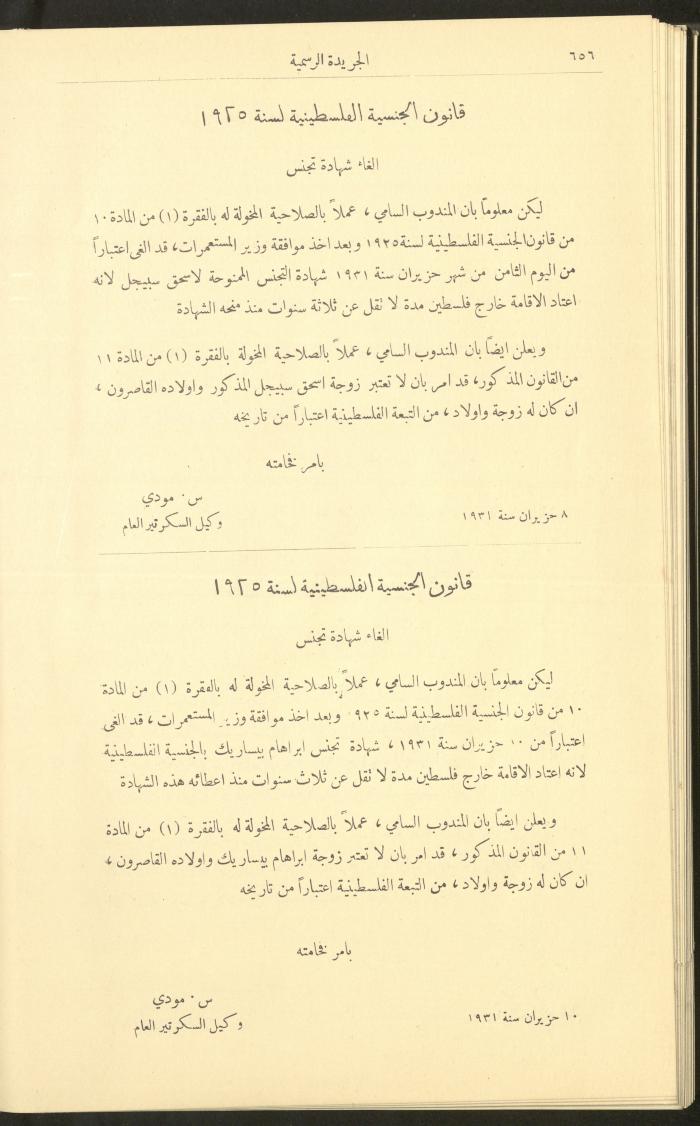 ٦٥٦
الجريدة الرسمية
قانون الجنسية الفلسطينية لسنة ١٩٢٥
الغاء شهادة تجنس
ليكن معلوماً بان المندوب السامي ، عملاً بالصلاحية المخولة له بالفقرة (١) من المادة ١٠
من قانون الجنسية الفلسطينية لسنة ١٩٢٥ وبعد اخذ موافقة وزير المستعمرات، قد الغى اعتباراً
من اليوم الثامن من شهر حزيران سنة ١٩٣١ شهادة التجنس الممنوحة لاسحق سبيجل لانه
اعتاد الاقامة خارج فلسطين مدة لا تقل عن ثلاثة سنوات منذ منحه الشهادة
ويعلن ايضاً بان المندوب السامي ، عملاً بالصلاحية المخولة بالفقرة (١) من المادة ١١
من القانون المذكور، قد امر بان لا تعتبر زوجة اسحق سبيجل المذكور واولاده القاصرون ،
ان كان له زوجة واولاد ، من التبعة الفلسطينية اعتباراً من تاريخه
بامر فخامته
س . مودي
٨ حزيران سنة ١٩٣١
وكيل السكرتير العام
قانون الجنسية الفلسطينية لسنة ١٩٢٥
الغاء شهادة تجنس
ليكن معلوماً بان المندوب السامي ، عملاً بالصلاحية المخولة له بالفقرة (١) من المادة
١٠ من قانون الجنسية الفلسطينية لسنة ١٩٢٥ وبعد اخذ موافقة وزير المستعمرات ، قد الغى
اعتباراً من ١٠ حزيران سنة ١٩٣١ ، شهادة تجنس ابراهام بيساريك بالجنسية الفلسطينية
لانه اعتاد الاقامة خارج فلسطين مدة لا تقل عن ثلاث سنوات منذ اعطائه هذه الشهادة
ويعلن ايضاً بان المندوب السامي ، عملاً بالصلاحية المخولة له بالفقرة (١) من المادة
١١ من القانون المذكور ، قد امر بان لا تعتبر زوجة ابراهام بيساريك واولاده القاصرون ،
ان كان له زوجة واولاد ، من التبعة الفلسطينية اعتباراً من تاريخه
بامر فخامته
س . مودي
١٠ حزيران سنة ١٩٣١
وكيل السكرتير العام